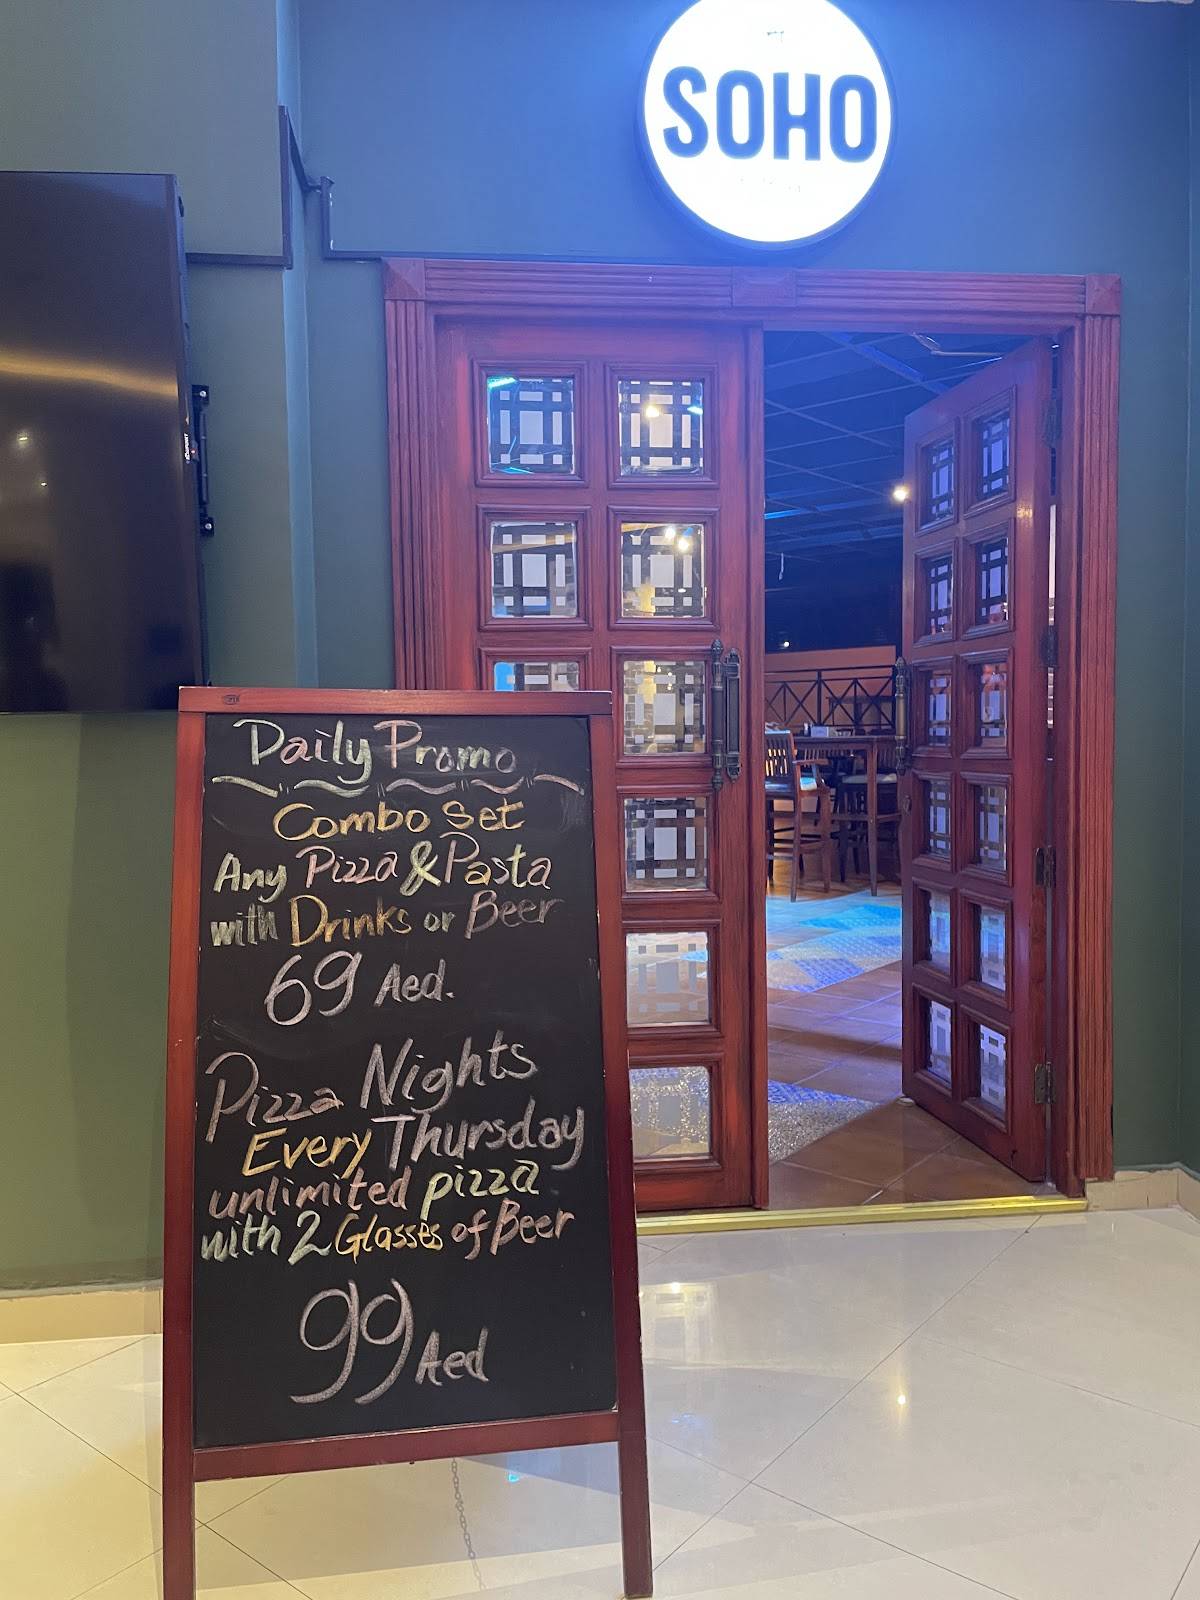 SOHO
Daily Promo
Combo Set
Any Pizza & Pasta
with Drinks or Beer
69 Aed.
Pizza Nights
Every Thursday
unlimited pizza
with 2 Glasses of Beer
99 Aed